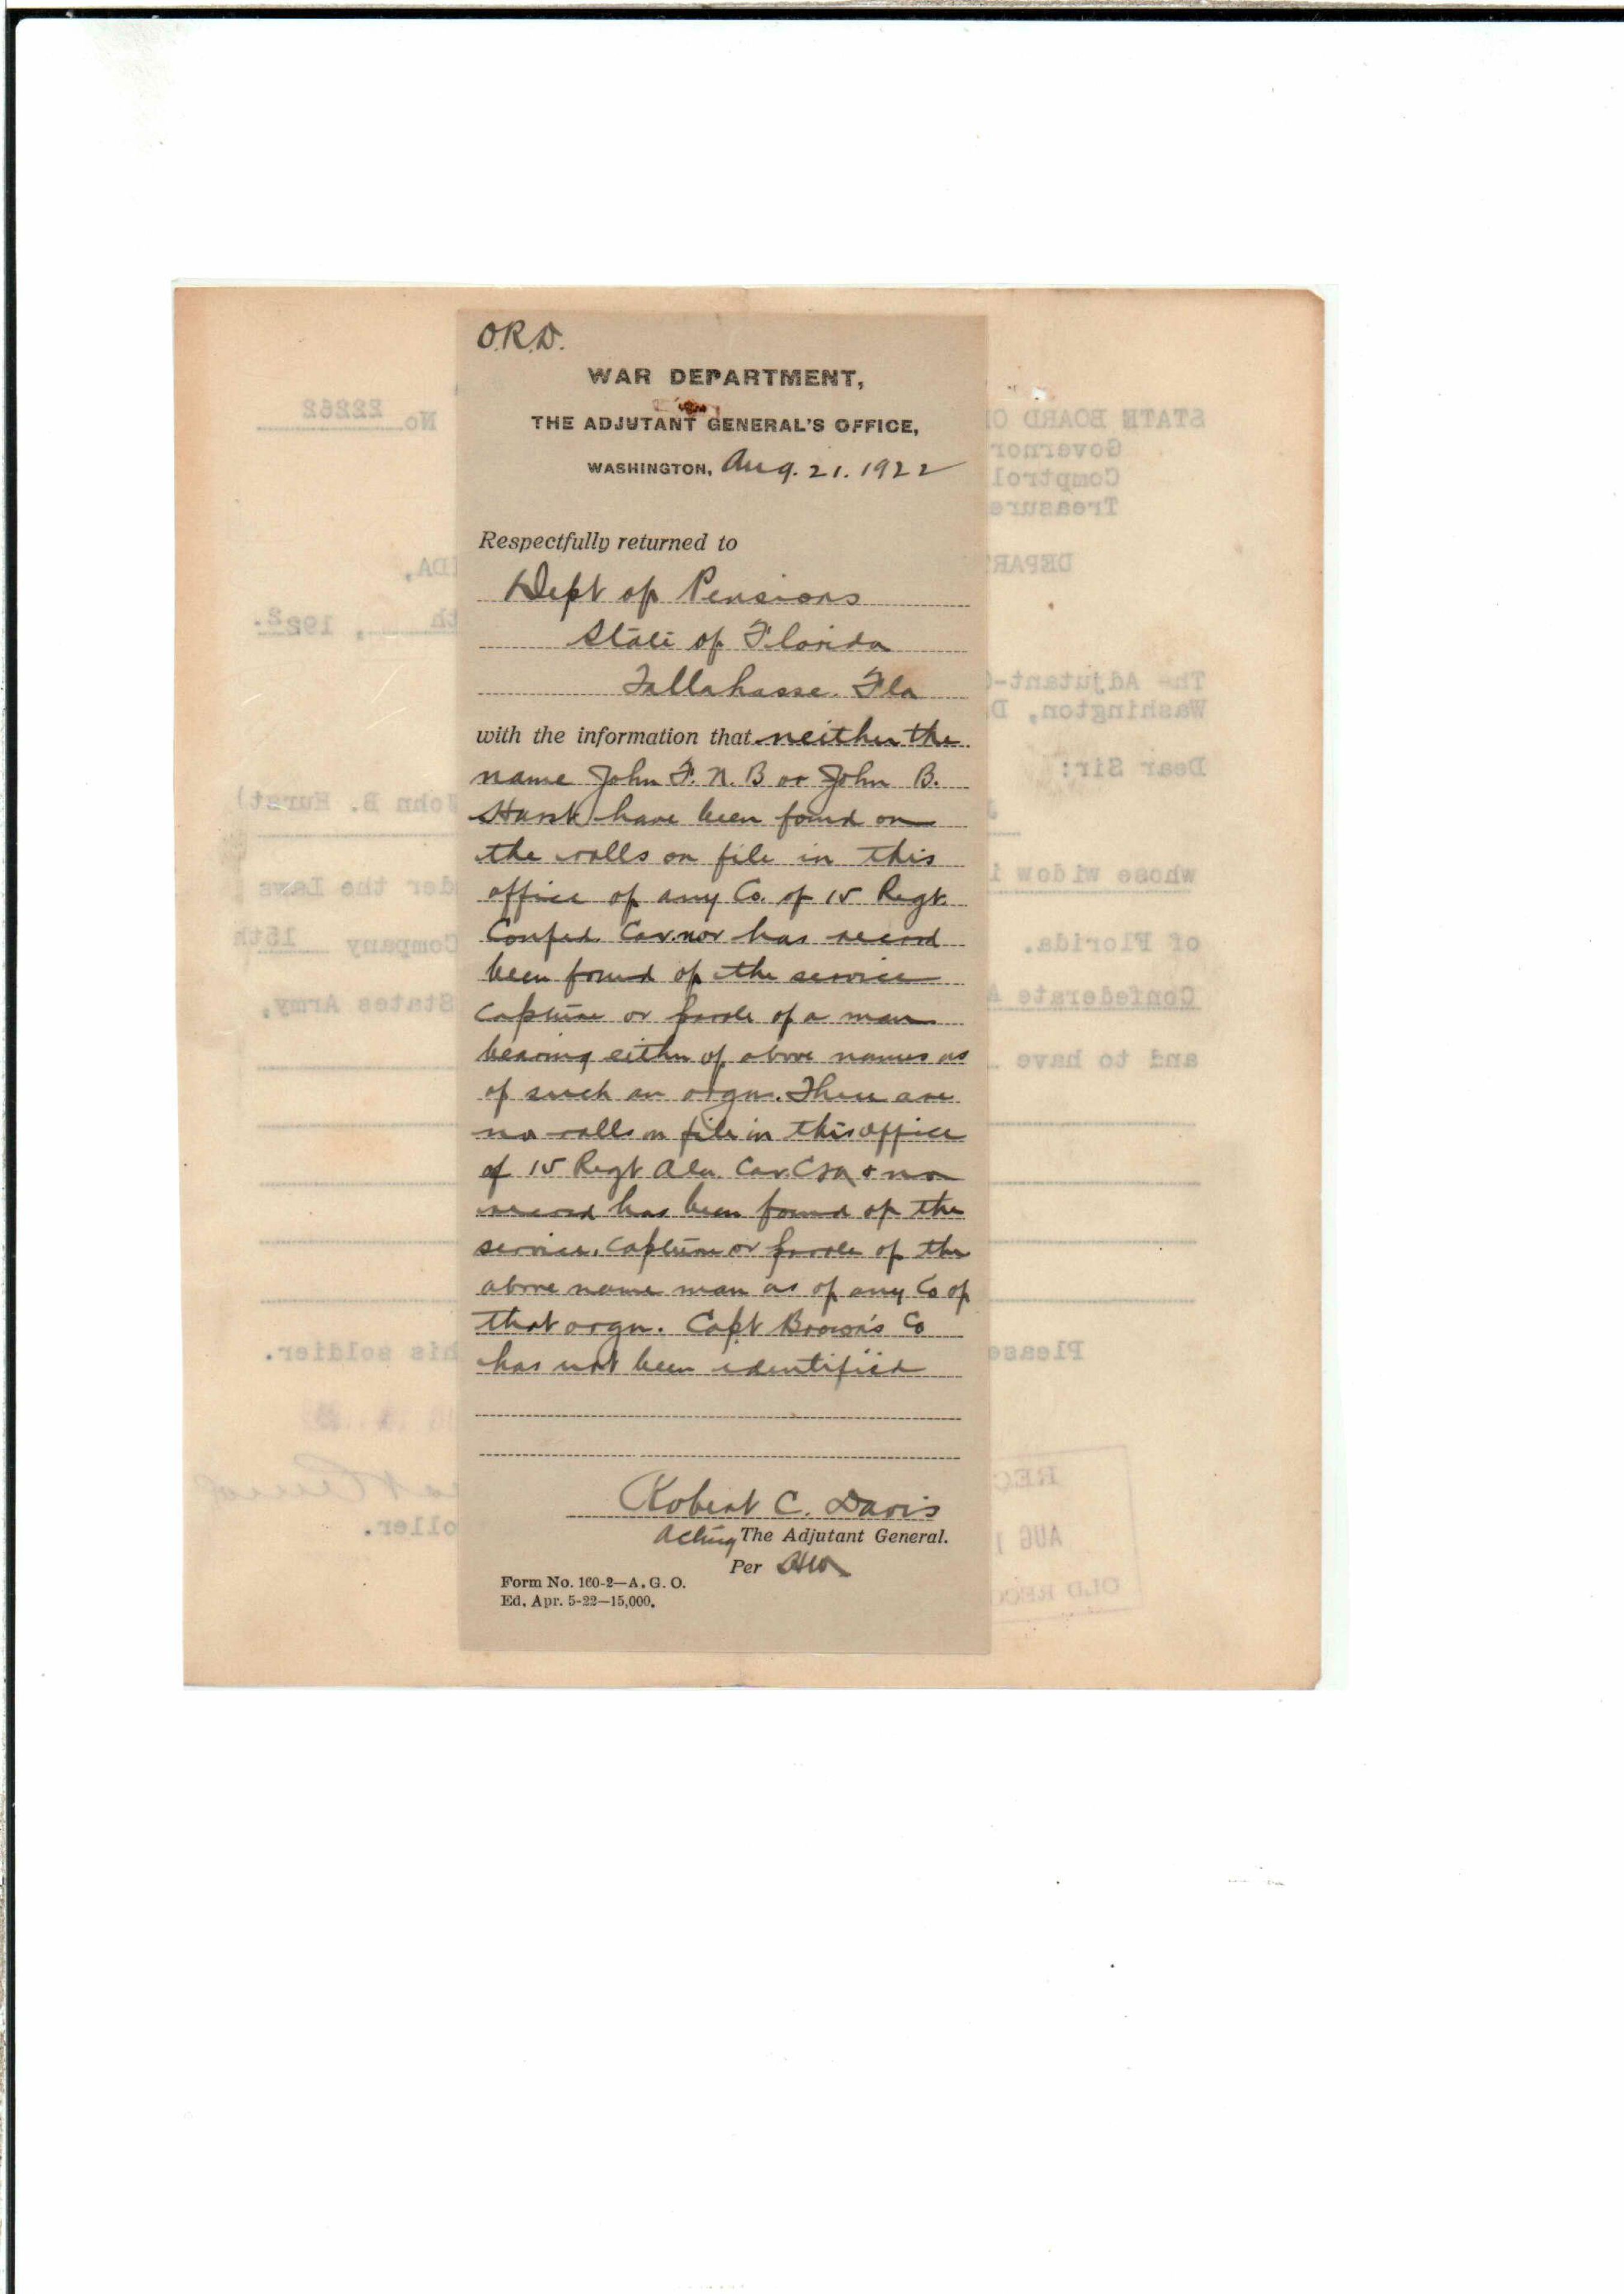 O.R.D.
WAR DEPARTMENT,
THE ADJUTANT GENERAL'S OFFICE,
WASHINGTON, Aug. 21. 1922
Respectfully returned to
Dept of Pensions
State of Florida
Tallahasse. Fla
with the information that neither the
name John F. N. B or John B.
Hurst have been found on
the rolls on file in this
office of any Co. of 15 Regt.
Confed. Cav. nor has record
been found of the service
capture or parole of a man
bearing either of above names as
of such an orgn. There are
no rolls on file in this office
of 15 Regt Ala. Cav. CSA & no
record has been found of the
service, capture or parole of the
above name man as of any Co of
that orgn. Capt Brown's Co
has not been identified
Robert C. Davis
Acting The Adjutant General.
Per
Form No. 160-2—A. G. O.
Ed. Apr. 5-22—15,000.
No 22262
STATE BOARD O
Governor
Comptrol
Treasure
DEPAR
IDA,
th , 1922.
The Adjutant-
Washington, D
Dear Sir:
John B. Hurst)
whose widow i
der the Laws
of Florida.
Company 15th
Confederate A
States Army,
and to have
Please
his soldier.
REC
AUG 1
OLD REC
oller.